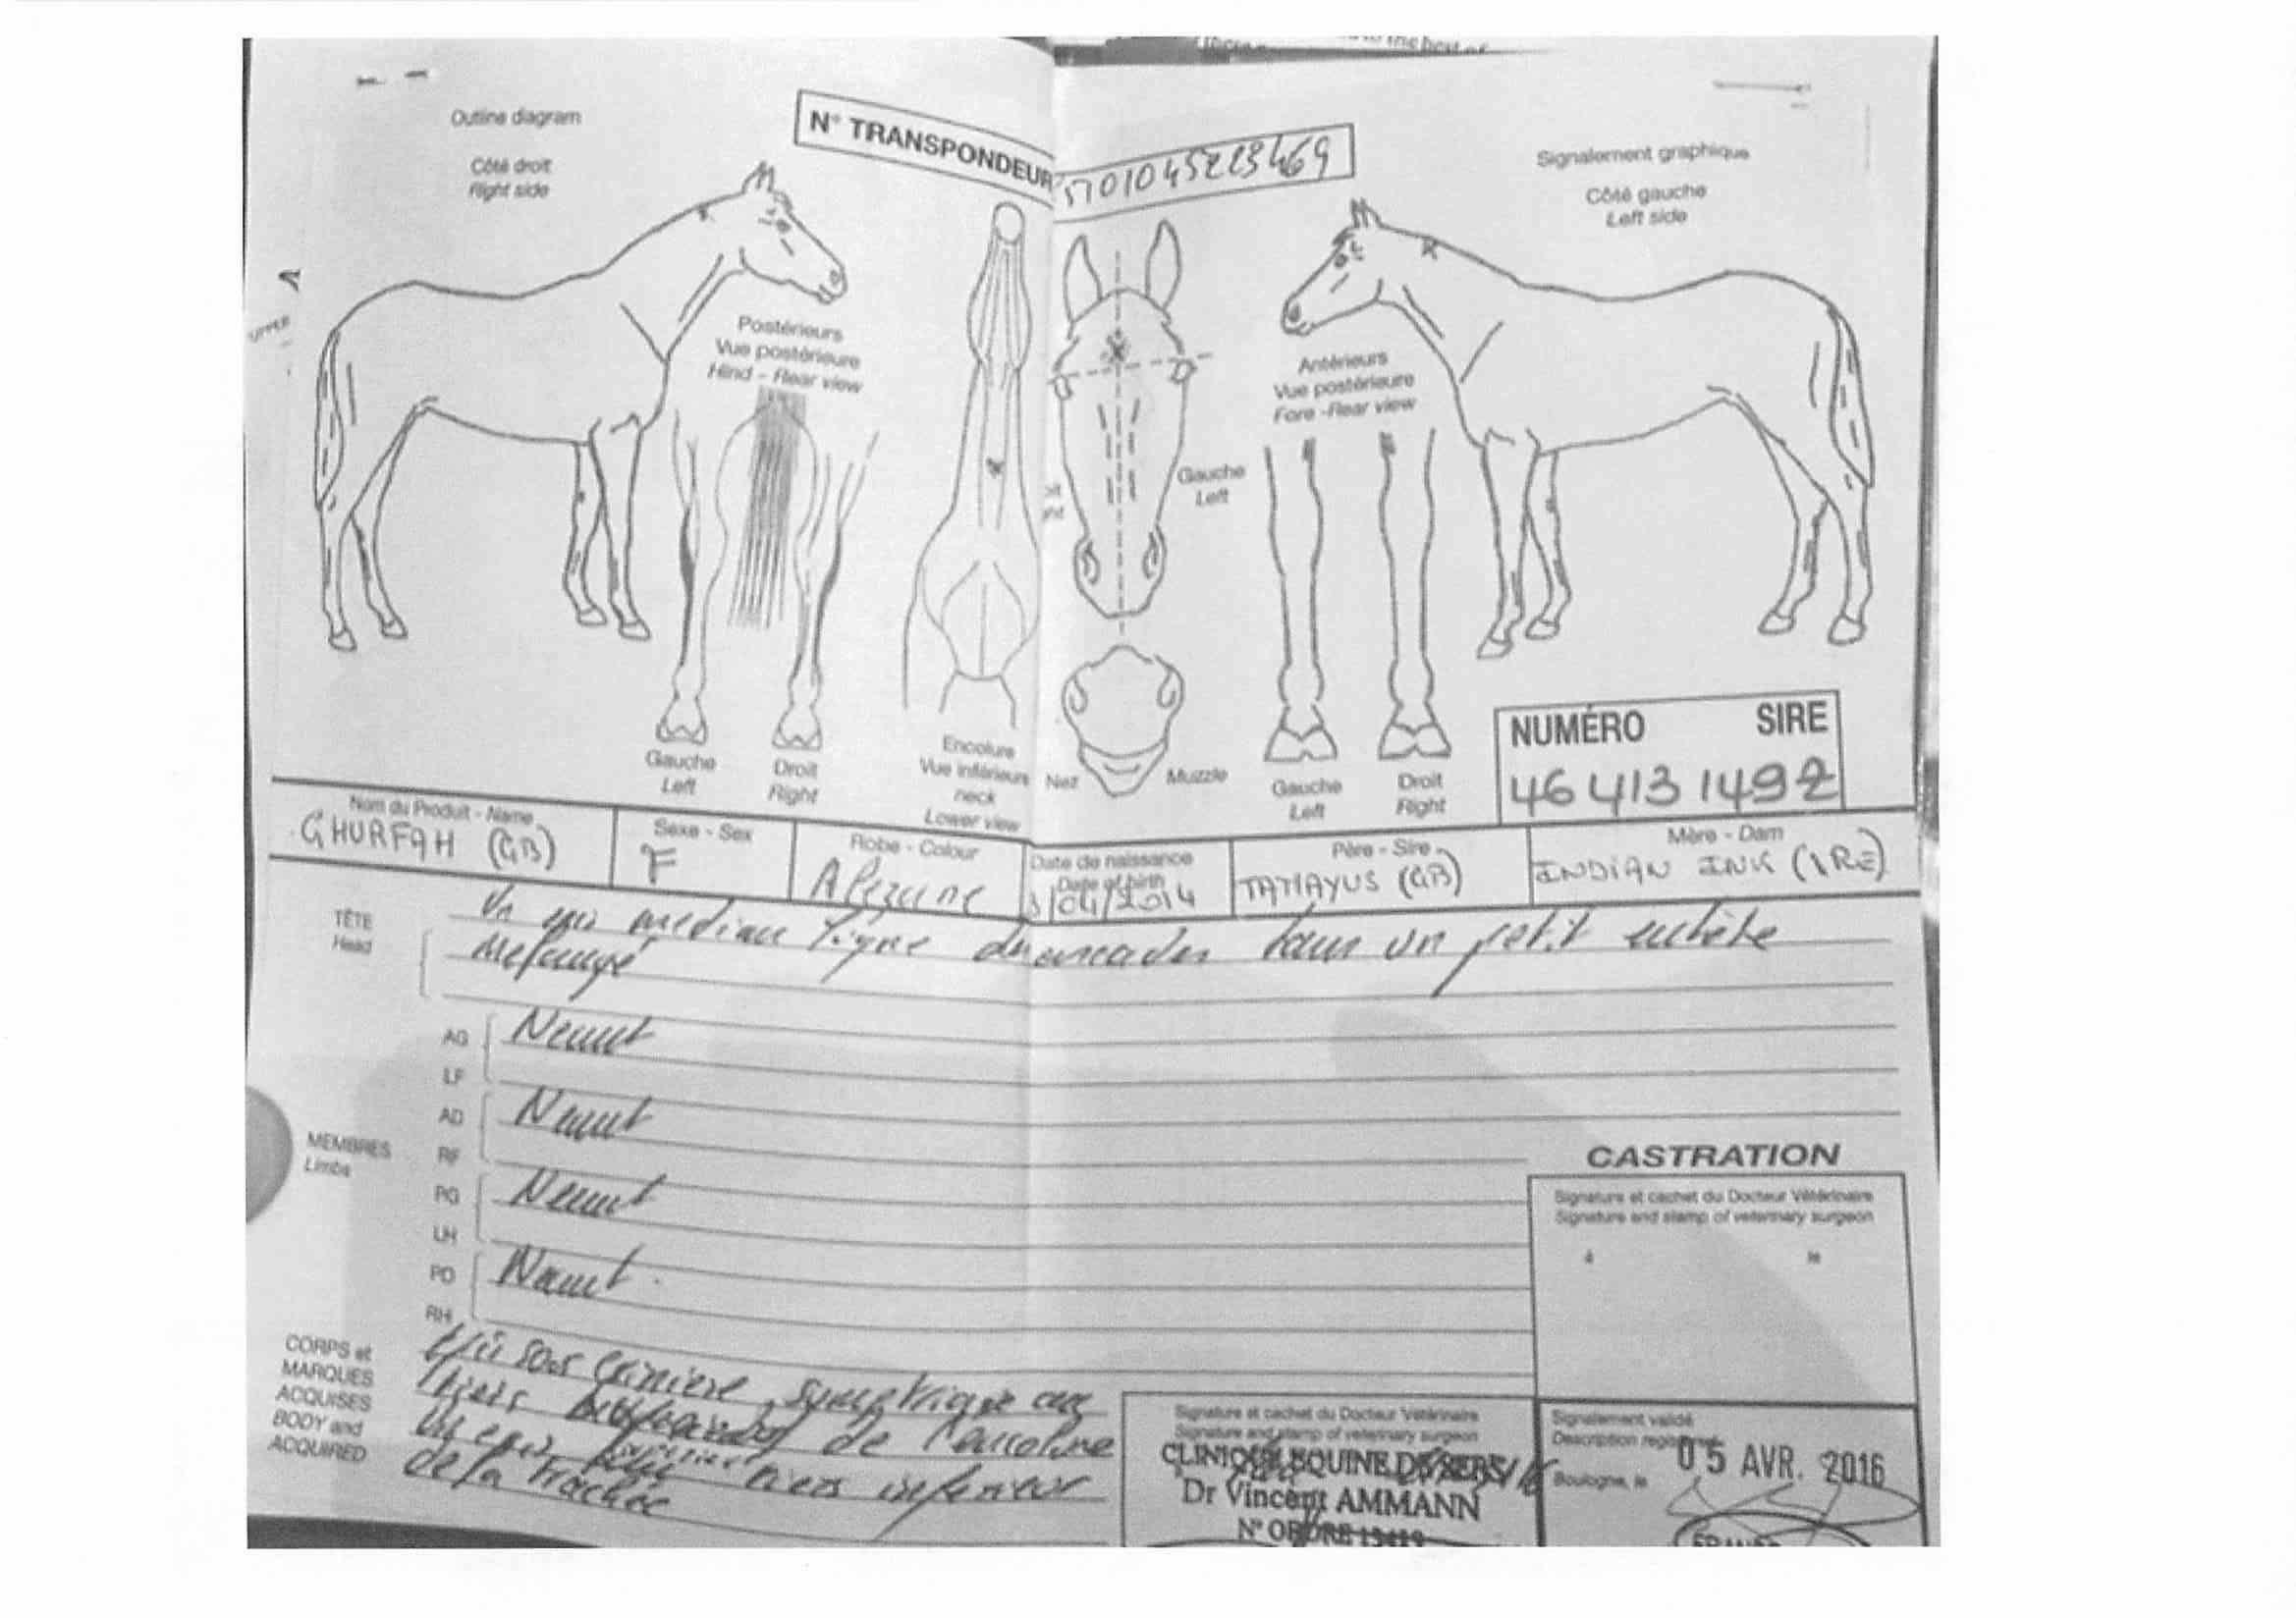 Outline diagram
Côté droit
Right side
N° TRANSPONDEUR
Signalement graphique
Côté gauche
Left side
UPPER
Postérieurs
Vue postérieure
Hind - Rear view
Antérieurs
Vue postérieure
Fore - Rear view
Gauche
Left
Gauche
Left
Droit
Right
Encolure
Vue inférieure
neck
Lower view
Nez
Muzzle
Gauche
Left
Droit
Right
NUMÉRO SIRE
46 413 149 2
Nom du Produit - Name
GHURFAH (GB)
Sexe - Sex
F
Robe - Colour
Alezane
Date de naissance
Date of birth
/04/2014
Père - Sire
TAMAYUS (GB)
Mère - Dam
INDIAN INK (IRE)
TÊTE
Head
Un epi median ligne dans un petit entête
Melangé
MEMBRES
Limbs
AG
LF
Neant
AD
RF
Neant
PG
LH
Neant
PD
RH
Neant.
CASTRATION
Signature et cachet du Docteur Vétérinaire
Signature and stamp of veterinary surgeon
à le
CORPS et
MARQUES
ACQUISES
BODY and
ACQUIRED
Epis sous criniere symetrique au
tiers de l'encolure
Un epi tiers inferieur
de la trachée
Signature et cachet du Docteur Vétérinaire
Signature and stamp of veterinary surgeon
CLINIQUE EQUINE
Dr Vincent AMMANN
N° ORDRE
Signalement validé
Description registered
Boulogne, le
05 AVR. 2016